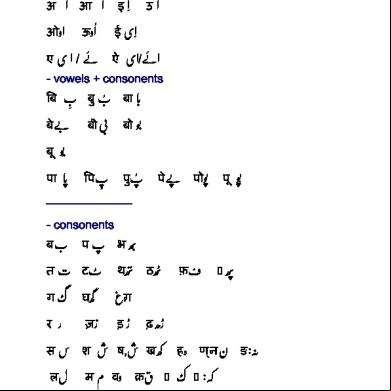 अ ا आ آ इ اِ उ اُ
ओ او ऊ اُو ई اِی
ए ے / ای ऐ اے/ ای
- vowels + consonents
बि بِ बु بُ बा با
बे بے बी بی बो بو
बू بو
पा پا पि پِ पु پُ पे پے पो پو पू پو
- consonents
ब ب प پ भ بھ
त ت ट ٹ थ تھ ठ ٹھ फ़ ف پھ
ग گ घ گھ ग़ غ
र ر ज़ ز ड़ ڑ ढ़ ڑھ
स س श ش ष ش ख کھ ह ہ ण,न ن ङ
ल ل म م व و क़ ق ک